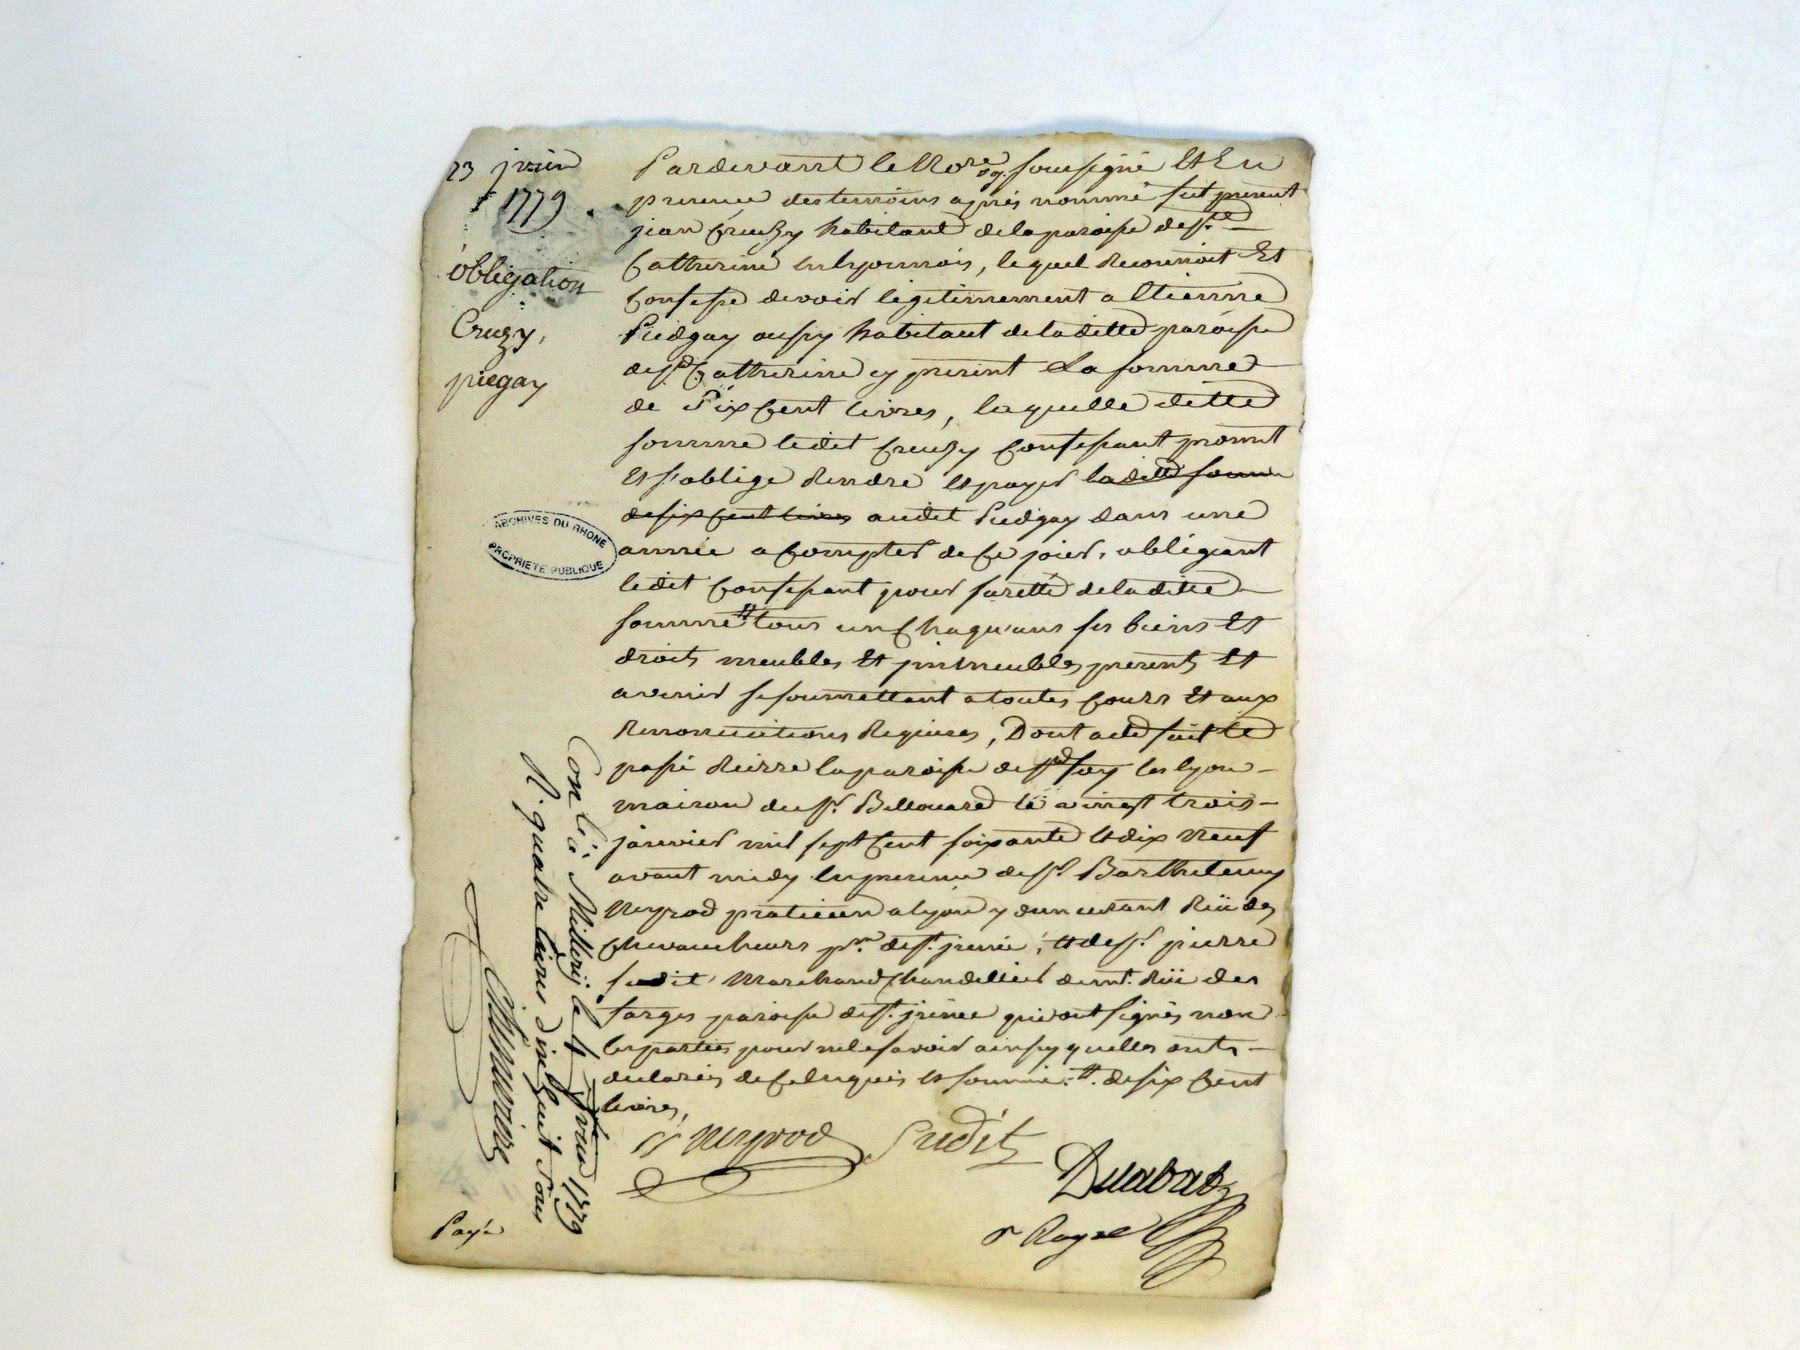 23 janvier
1779.
obligation
Creuzy,
piegay
Pardevant le No.re Rg. soussigné Et En
presence des temoins aprés nommé fut present
jean Creuzy habitant de la paroisse de s.te
Catherine en lyonnois, lequel Reconnoit Et
Confesse devoir legitimement a Etienne
Piedgay aussy habitant de la ditte paroisse
de s.te Catherine cy present La somme
de Six Cent livres, laquelle ditte
somme ledit Creuzy Confessant promit
Et s'oblige Rendre et payer la ditte somme
de six Cent livres audit Piedgay dans une
année a Compter de Ce jour, obligeant
ledit Confessant pour suretté de la ditte
somme # tous un Chaqu'uns ses biens Et
droits meubles Et jmmeubles presents Et
avenir se soumettant a toutes Cours Et aux
Renonciations Requises, Dont acte fait Et
passé Rierre la paroisse de s.te foy les lyon
maison du s.r Bellouard le vingt trois
janvier mil sept Cent soixante et dix neuf
avant midy En presence de s.r Barthelemy
Neyrod praticien a lyon y demeurant Rüe des
Chevaucheurs p.se de s.t jrenée, et de s.r pierre
sudit Marchand Chandellier demt. Rüe des
farges paroisse de s.t jrénée qui ont signés non
les parties pour ne le savoir ainsy quelles ont
declarés de Ce Enquis et sommé. #. de six Cent
livres,
B Neyrod
Sudit
Duabat
Payé
ARCHIVES DU RHONE
PROPRIETE PUBLIQUE
Con.lé a Millery le 4 fevrier 1779
R. quatre livres dix huit sous